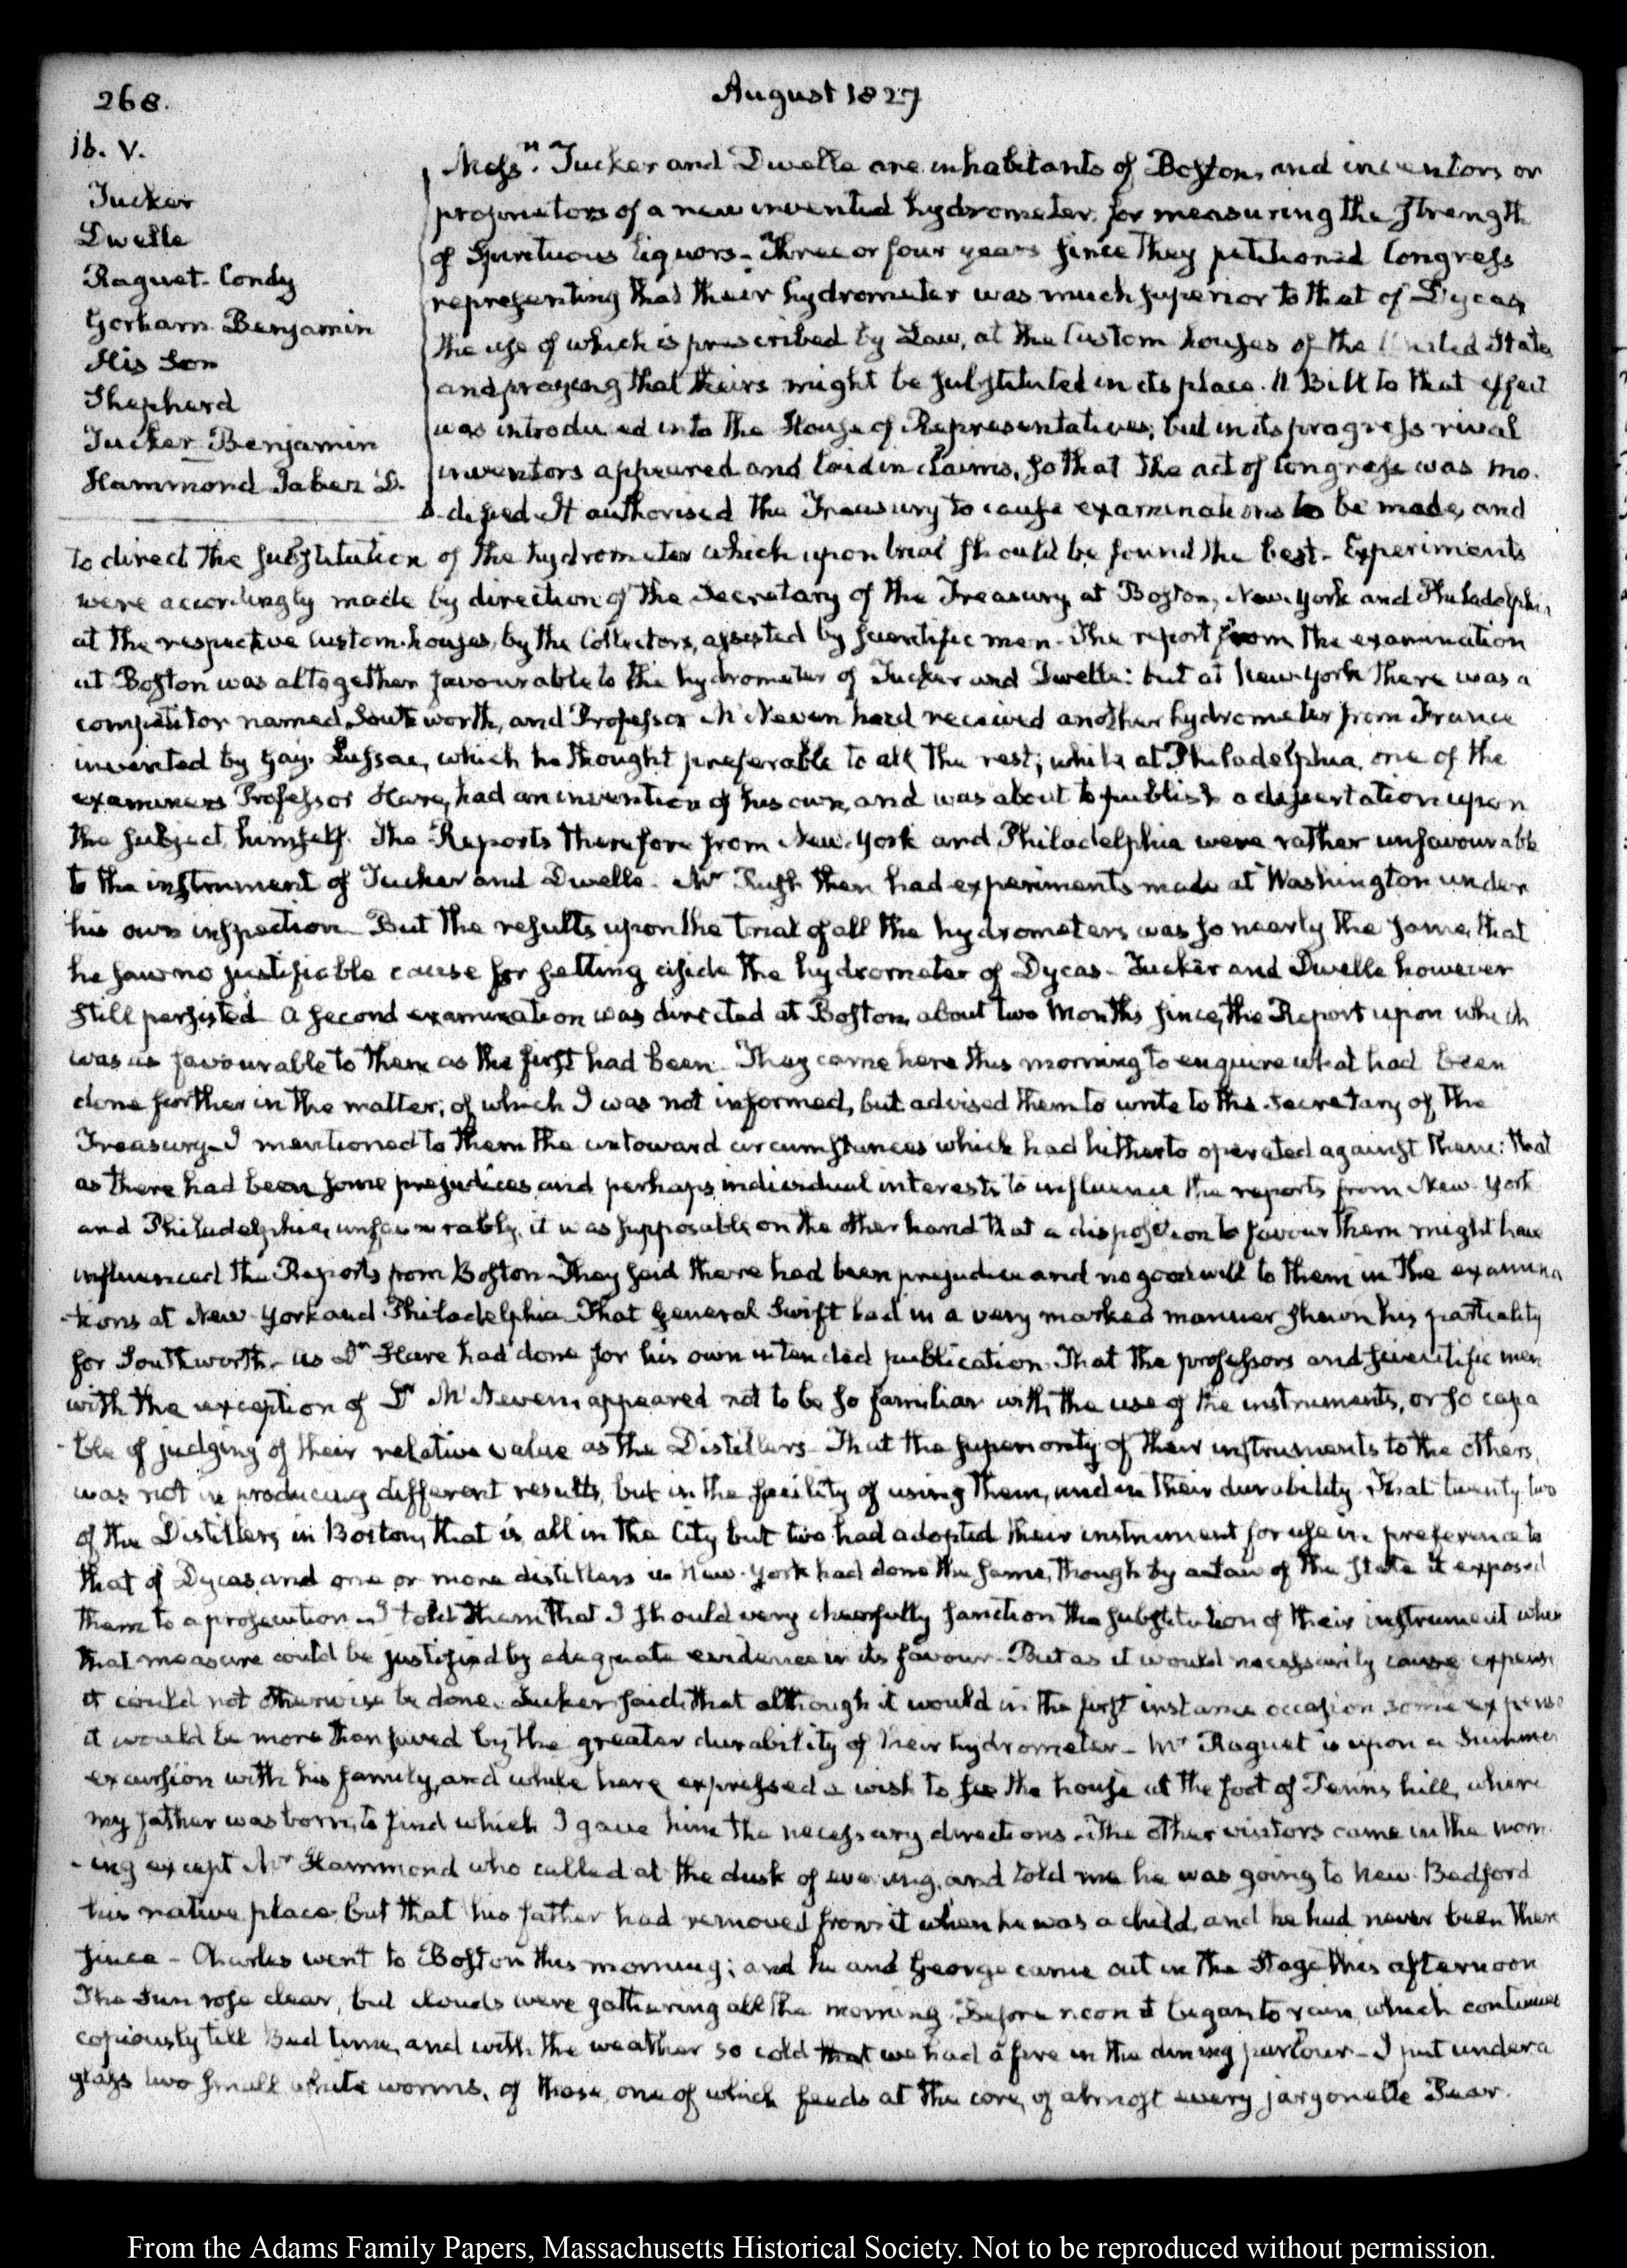 268.
August 1827
16. V.
Tucker
Dwelle
Raguet. Condy
Gorham Benjamin
His Son
Shepherd
Tucker Benjamin
Hammond Jaber D.
Messrs. Tucker and Dwelle are inhabitants of Boston, and inventors or
proprietors of a new invented hydrometer, for measuring the strength
of Spirituous liquors. Three or four years since they petitioned Congress
representing that their hydrometer was much superior to that of Dycas,
the use of which is prescribed by Law, at the Custom houses of the United States
and praying that theirs might be substituted in its place. A Bill to that effect
was introduced into the House of Representatives; but in its progress rival
inventors appeared and laid in claims, so that the act of Congress was mo-
dified. It authorised the Treasury to cause examinations to be made, and
to direct the substitution of the hydrometer which upon trial should be found the best. Experiments
were accordingly made by direction of the Secretary of the Treasury at Boston, New-York and Philadelphia
at the respective Custom-houses, by the Collectors, assisted by scientific men. The report from the examination
at Boston was altogether favourable to the hydrometer of Tucker and Dwelle: but at New-York there was a
competitor named Southworth, and Professor McNeven had received another hydrometer from France
invented by Gay-Lussac, which he thought preferable to all the rest; while at Philadelphia, one of the
examiners Professor Hare, had an invention of his own, and was about to publish a dissertation upon
the subject himself. The Reports therefore from New-York and Philadelphia were rather unfavourable
to the instrument of Tucker and Dwelle. Mr Rush then had experiments made at Washington under
his own inspection. But the results upon the trial of all the hydrometers was so nearly the same, that
he saw no justifiable cause for setting aside the hydrometer of Dycas. Tucker and Dwelle however
still persisted. A second examination was directed at Boston, about two Months since, the Report upon which
was as favourable to them as the first had been. They came here this morning to enquire what had been
done further in the matter; of which I was not informed, but advised them to write to the Secretary of the
Treasury. I mentioned to them the untoward circumstances which had hitherto operated against them: that
as there had been some prejudices and perhaps individual interests to influence the reports from New-York
and Philadelphia, unfavourably, it was supposable on the other hand that a disposition to favour them might have
influenced the Reports from Boston. They said there had been prejudice and no good will to them in the examina
-tions at New-York and Philadelphia. That General Swift had in a very marked manner shewn his partiality
for Southworth, as Dr Hare had done for his own intended publication. That the professors and scientific men
with the exception of Dr McNeven, appeared not to be so familiar with the use of the instruments, or so capa
-ble of judging of their relative value as the Distillers. That the superiority of their instruments to the others,
was not in producing different results, but in the facility of using them, and in their durability. That twenty-two
of the Distillers in Boston, that is all in the City but two had adopted their instrument for use in preference to
that of Dycas and one or more distillers in New-York had done the same, though by a law of the State it exposed
them to a prosecution. I told them that I should very cheerfully sanction the substitution of their instrument when
that measure could be justified by adequate evidence in its favour. But as it would necessarily cause expense
it could not otherwise be done. Tucker said that although it would in the first instance occasion some expense
it would be more than saved by the greater durability of their hydrometer. Mr Raguet is upon a Summer
excursion with his family, and while here expressed a wish to see the house at the foot of Penns hill, where
my father was born, to find which I gave him the necessary directions. The other visitors came in the morn-
-ing except Mr Hammond who called at the dusk of evening, and told me he was going to New-Bedford
his native place but that his father had removed from it when he was a child, and he had never been there
since. Charles went to Boston this morning; and he and George came out in the Stage this afternoon
The Sun rose clear, but clouds were gathering all the morning. Before noon it began to rain, which continued
copiously till Bed time, and with the weather so cold that we had a fire in the dining parlour. I put under a
glass two small white worms, of those, one of which feeds at the core, of almost every jargonelle Pear.
From the Adams Family Papers, Massachusetts Historical Society. Not to be reproduced without permission.